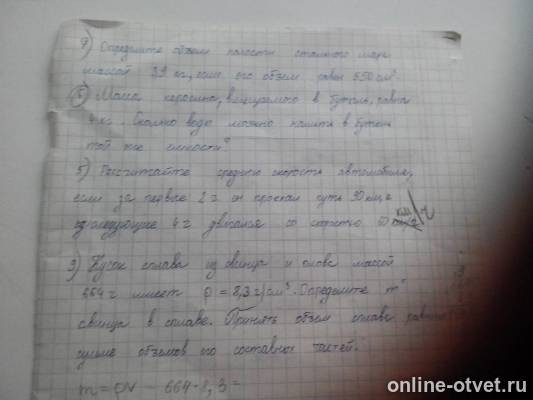 7) Определите объем полости стального шара
массой 3,9 кг, если его объем равен 550 см³.
6) Масса керосина, вмещаемого в бутыль, равна
4 кг. Сколько воды можно налить в бутыль
той же емкости?
5) Рассчитайте среднюю скорость автомобиля,
если за первые 2 г он проехал путь 90 км, а
следующие 4 г двигался со скоростью 50 км/ч
9) Кусок сплава из свинца и олова массой
664 г имеет ρ = 8,3 г/см³. Определите m
свинца в сплаве. Принять объем сплава равным
сумме объемов его составных частей.
m = ρV 664·8,3 =
online-otvet.ru